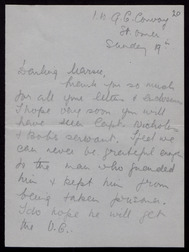 20
Sunday 19th
Darling Marie,
Thank you so much
for all your letters & enclosures
I hope very soon you will
have seen Capt. Nicholson
& Bob's servant. I feel we
can never be grateful enough
to the man who
him & kept him from
being taken prisoner.
I do hope he will get
the V.C.